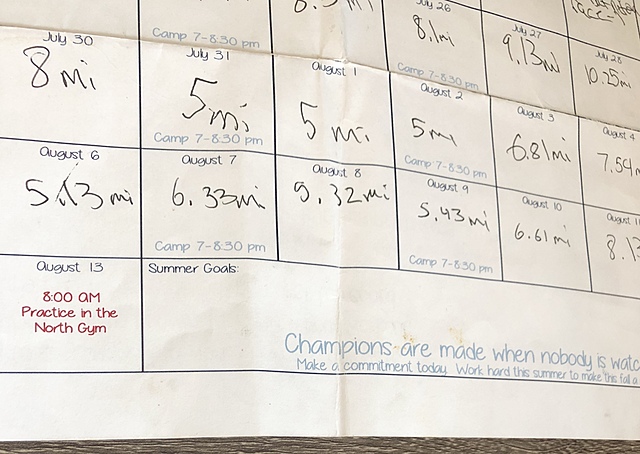 July 26
8.1 mi
Camp 7-8:30 pm
July 27
9.13 mi
July 28
10.25 mi
Camp 7-8:30 pm
July 30
8 mi
July 31
5 mi
Camp 7-8:30 pm
August 1
5 mi
August 2
5 mi
Camp 7-8:30 pm
August 3
6.81 mi
August 4
7.54
August 6
5.13 mi
August 7
6.33 mi
Camp 7-8:30 pm
August 8
5.32 mi
August 9
5.43 mi
Camp 7-8:30 pm
August 10
6.61 mi
8.13
August 13
8:00 AM
Practice in the
North Gym
Summer Goals:
Champions are made when nobody is
Make a commitment today. Work hard this summer to make this fall a